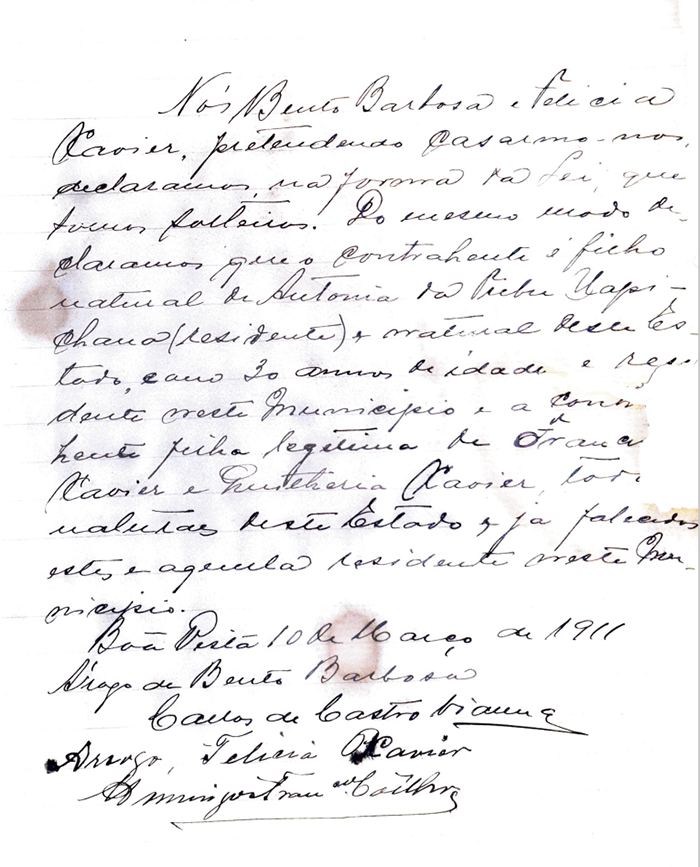 Nós Bento Barbosa e Felicia
Xavier, pretendendo casarmo-nos,
declaramos, na forma da Lei, que
somos solteiros. Do mesmo modo de-
claramos que o contrahente é filho
natural de Antonia da Tribu Uapi-
chana (residente) e natural deste Es-
tado, com 30 annos de idade e resi
dente neste Municipio e a contra
hente filha legitima de Franc
Xavier e Xavier, tod
naturaes deste Estado e já falecidos
estes e aquella residente neste Mu-
nicipio.
Bôa Vista 10 de Março de 1911
Árogo de Bento Barbosa
Carlos de Castro Vianna
Arrogo, Felicia Xavier
Domingos Fran co Coêlho